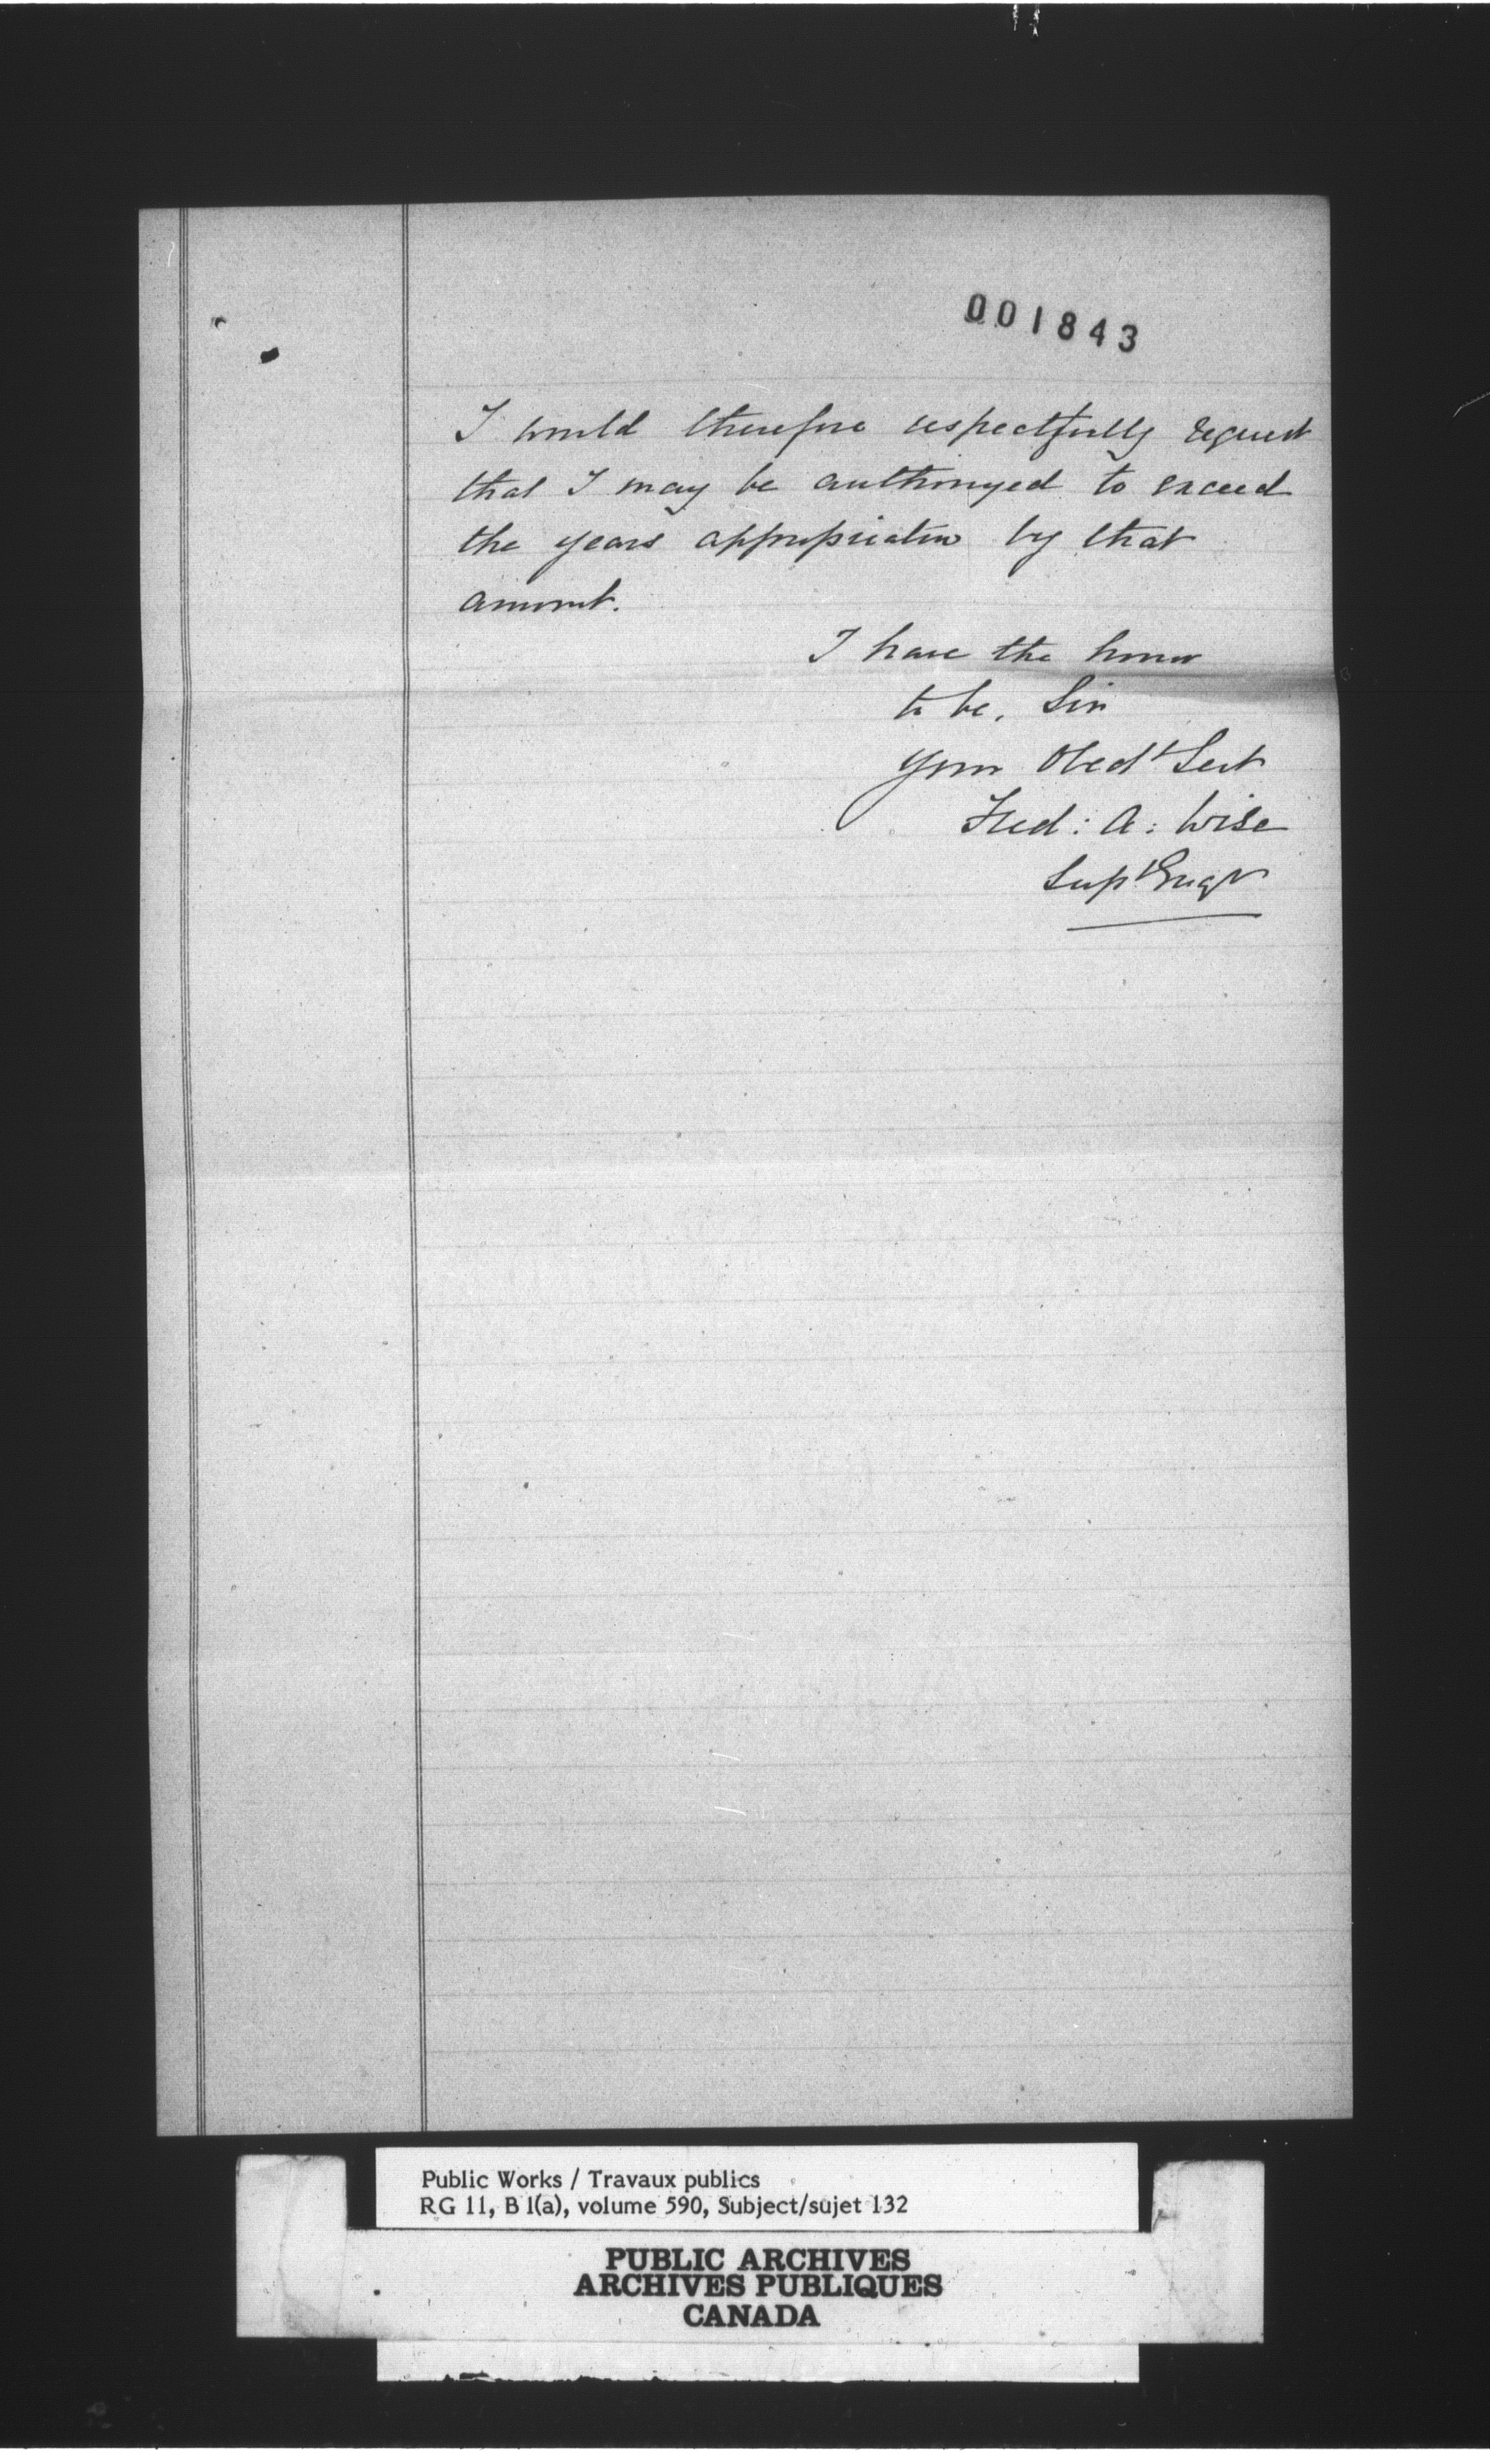 001843
I would therefore respectfully request
that I may be authorized to exceed
the years appropriation by that
amount.
I have the honor
to be, Sir
Your Obedt Sevt
Fred: A: Wise
Supt Engr
Public Works / Travaux publics
RG 11, B 1(a), volume 590, Subject/sujet 132
PUBLIC ARCHIVES
ARCHIVES PUBLIQUES
CANADA